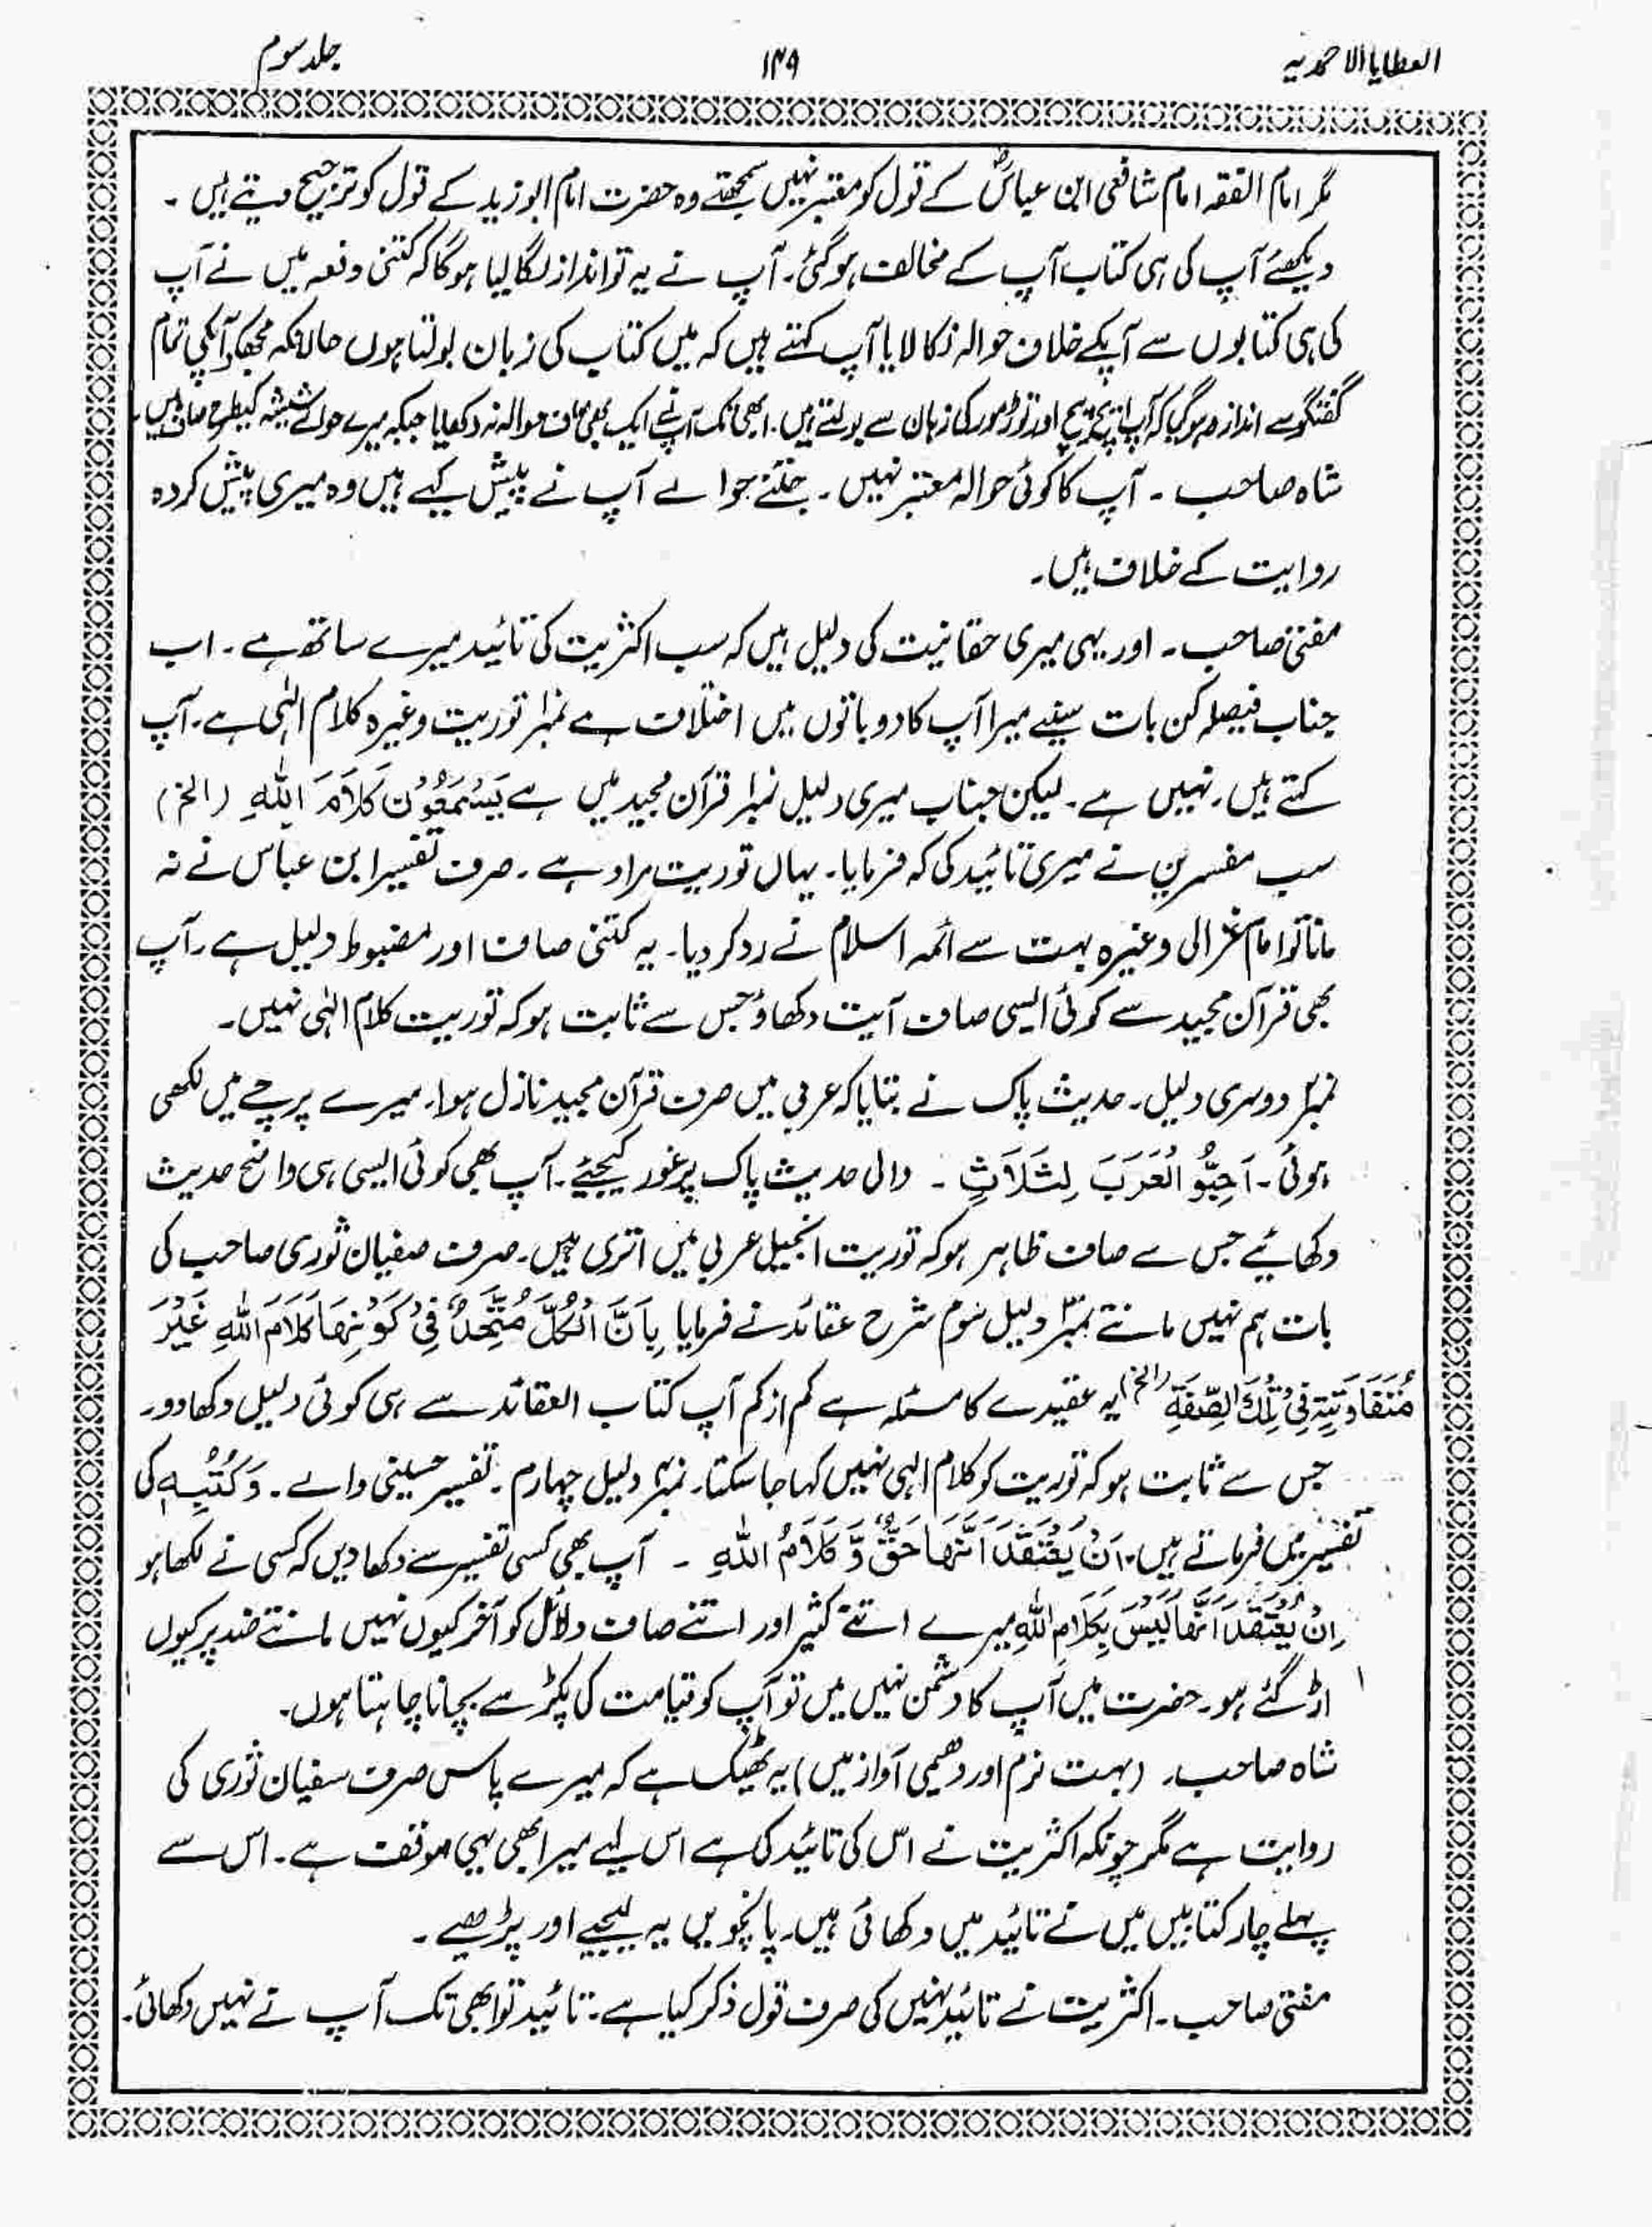 العطایا الاحمدیہ
۱۴۹
جلد سوم
مگر امام الفقہ امام شافعی ابن عباسؓ کے قول کو معتبر نہیں سمجھتے وہ حضرت امام ابوزید کے قول کو ترجیح دیتے ہیں ۔
دیکھئے آپ کی ہی کتاب آپ کے مخالف ہوگئی۔ آپ نے یہ تو انداز لگا لیا ہوگا کہ کتنی دفعہ میں نے آپ
کی ہی کتابوں سے آپکے خلاف حوالہ نکالا یا آپ کہتے ہیں کہ میں کتاب کی زبان بولتا ہوں حالانکہ مجھکو آپکی تمام
گفتگو سے اندازہ ہوگیا کہ آپ اپنی پیچ اور توڑ موڑ کی زبان سے بولتے ہیں۔ ابھی تک آپ نے ایک بھی صاف حوالہ نہ دکھایا جبکہ میرے حوالے شیشہ کیطرح صاف ہیں۔
شاہ صاحب ۔ آپ کا کوئی حوالہ معتبر نہیں ۔ جتنے حوالے آپ نے پیش کیے ہیں وہ میری پیش کردہ
روایت کے خلاف ہیں۔
مفتی صاحب ۔ اور یہی میری حقانیت کی دلیل ہیں کہ سب اکثریت کی تائید میرے ساتھ ہے ۔ اب
جناب فیصلہ کن بات سنیے میرا آپ کا دو باتوں میں اختلاف ہے نمبر۱ توریت وغیرہ کلام الہٰی ہے۔ آپ
کہتے ہیں۔ نہیں ہے۔ لیکن جناب میری دلیل نمبر۱ قرآن مجید میں ہے یَسْمَعُوْنَ کَلَامَ اللّٰہِ (الخ)
سب مفسرین نے میری تائید کی کہ فرمایا۔ یہاں توریت مراد ہے ۔ صرف تفسیر ابن عباس نے نہ
مانا تو امام غزالی وغیرہ بہت سے ائمہ اسلام نے رد کر دیا۔ یہ کتنی صاف اور مضبوط دلیل ہے۔ آپ
بھی قرآن مجید سے کوئی ایسی صاف آیت دکھاؤ جس سے ثابت ہو کہ توریت کلام الہٰی نہیں۔
نمبر۲ دوسری دلیل۔ حدیث پاک نے بتایا کہ عربی میں صرف قرآن مجید نازل ہوا۔ میرے پرچے میں لکھی
ہوئی۔ اَحِبُّو الْعَرَبَ لِثَلَاثٍ ۔ والی حدیث پاک پر غور کیجئے۔ آپ بھی کوئی ایسی ہی واضح حدیث
دکھائیے جس سے صاف ظاہر ہو کہ توریت انجیل عربی میں اتری ہیں۔ صرف صفیان ثوری صاحب کی
بات ہم نہیں مانتے نمبر۳ دلیل سوم شرح عقائد نے فرمایا بِاَنَّ الْکُلَّ مُتَّحِدٌ فِیْ کَوْنِھَا کَلَامَ اللّٰہِ غَیْرَ
مُتَفَاوِتَۃٍ فِیْ تِلْکَ الصِّفَۃِ (الخ) یہ عقیدے کا مسئلہ ہے کم از کم آپ کتاب العقائد سے ہی کوئی دلیل دکھا دو۔
جس سے ثابت ہو کہ توریت کو کلام الہی نہیں کہا جا سکتا۔ نمبر۴ دلیل چہارم ۔ تفسیر حسینی والے ۔ وَکُتُبِہٖ کی
تفسیر میں فرماتے ہیں۔ اَنْ یَعْتَقِدَ اَنَّھَا حَقٌّ وَّ کَلَامُ اللّٰہِ ۔ آپ بھی کسی تفسیر سے دکھا دیں کہ کسی نے لکھا ہو
اِنْ یَعْتَقِدَ اَنَّھَا لَیْسَ بِکَلَامِ اللّٰہِ میرے اتنے کثیر اور اتنے صاف دلائل کو آخر کیوں نہیں مانتے ضد پر کیوں
اڑ گئے ہو۔ حضرت میں آپ کا دشمن نہیں میں تو آپ کو قیامت کی پکڑ سے بچانا چاہتا ہوں۔
شاہ صاحب۔ (بہت نرم اور دھیمی آواز میں) یہ ٹھیک ہے کہ میرے پاس صرف سفیان ثوری کی
روایت ہے مگر چونکہ اکثریت نے اس کی تائید کی ہے اس لیے میرا بھی یہی موقف ہے۔ اس سے
پہلے چار کتابیں میں نے تائید میں دکھائی ہیں۔ پانچویں یہ لیجیے اور پڑھیے ۔
مفتی صاحب۔ اکثریت نے تائید نہیں کی صرف قول ذکر کیا ہے۔ تائید تو ابھی تک آپ نے نہیں دکھائی۔